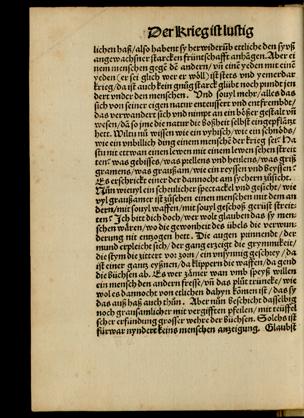 Der Krieg ist lustig
lichen haß/also habent sy herwiderüb ettliche den syyß
angewachßner starcken früntschafft anhägen. Aber ei
nem menschen gegē dē andern/vn̄ einē yeden mit einē
yeden (er sei glich wer er wöll) ist stets vnd yemerdar
krieg/da ist auch kein gnůg starck glübt noch pündt jen
dert vnder den menschen. Vnd souyl mehr/alles das
sich von seiner eigen natur enteussert vnd entfrembdt/
das verwandert sich vnd nimpt an ein bößer gestalt vn̄
wesen/dā so jme die natur die boßheit selbst eingepflātzt
het. Wiltu nū wissen wie ein vyhisch/wie ein schnöds/
wie ein vnbillich ding einem mensche der krieg sei? Ha
stu mit etwan einen lewen mit einem lewen sehen streit
ten? was gebisses/was prellens vnd heulens/was griß
gramens/was graußam/wie ein reyssen vnd beyssen?
Es erschrickt einer der dannocht am sychern zůsicht.
Nūn wieuyl ein schenlicher spectackel vnd gesicht/wie
vyl graußamer ist zůsehen einen menschen mit dem an
dern/mit souyl waffen/mit souyl geschoß gerüst streit
ten? Ich bitt dich doch/wer wolt glauben das sy men-
schen wären/wo die gewonheit des übels die verwun-
derung nit entzogen hett. Die augen prinnende/der
mund erpleicht sich/der gang erzeigt die grymmikeit/
die stym die zittert vor zorn/ein vnsynnig geschrey/da
ist einer gantz eyßnen/da klippern die waffen/da gend
die büchsen ab. Es wer zāmer wan vmb speyß willen
ein mensch den andern fresse/vn̄ das plůt trüncke/wie
wol es dannocht von etlichen dahyn kōmen ist/das sy
das auß haß auch thůn. Aber nūn beschicht dasselbig
noch grausamlicher mit vergifften pfeilen/mit teüffel
scher erfindung grosser wehre der büchsen. Solchs ist
fürwar nyndert keins menschen anzeigung. Glaubst